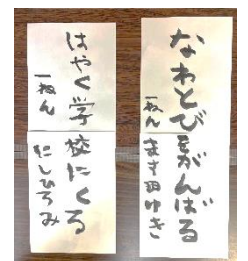 なわとびをがんばる
一ねん ますだゆき
はやく学校にくる
一ねん にしひろみ